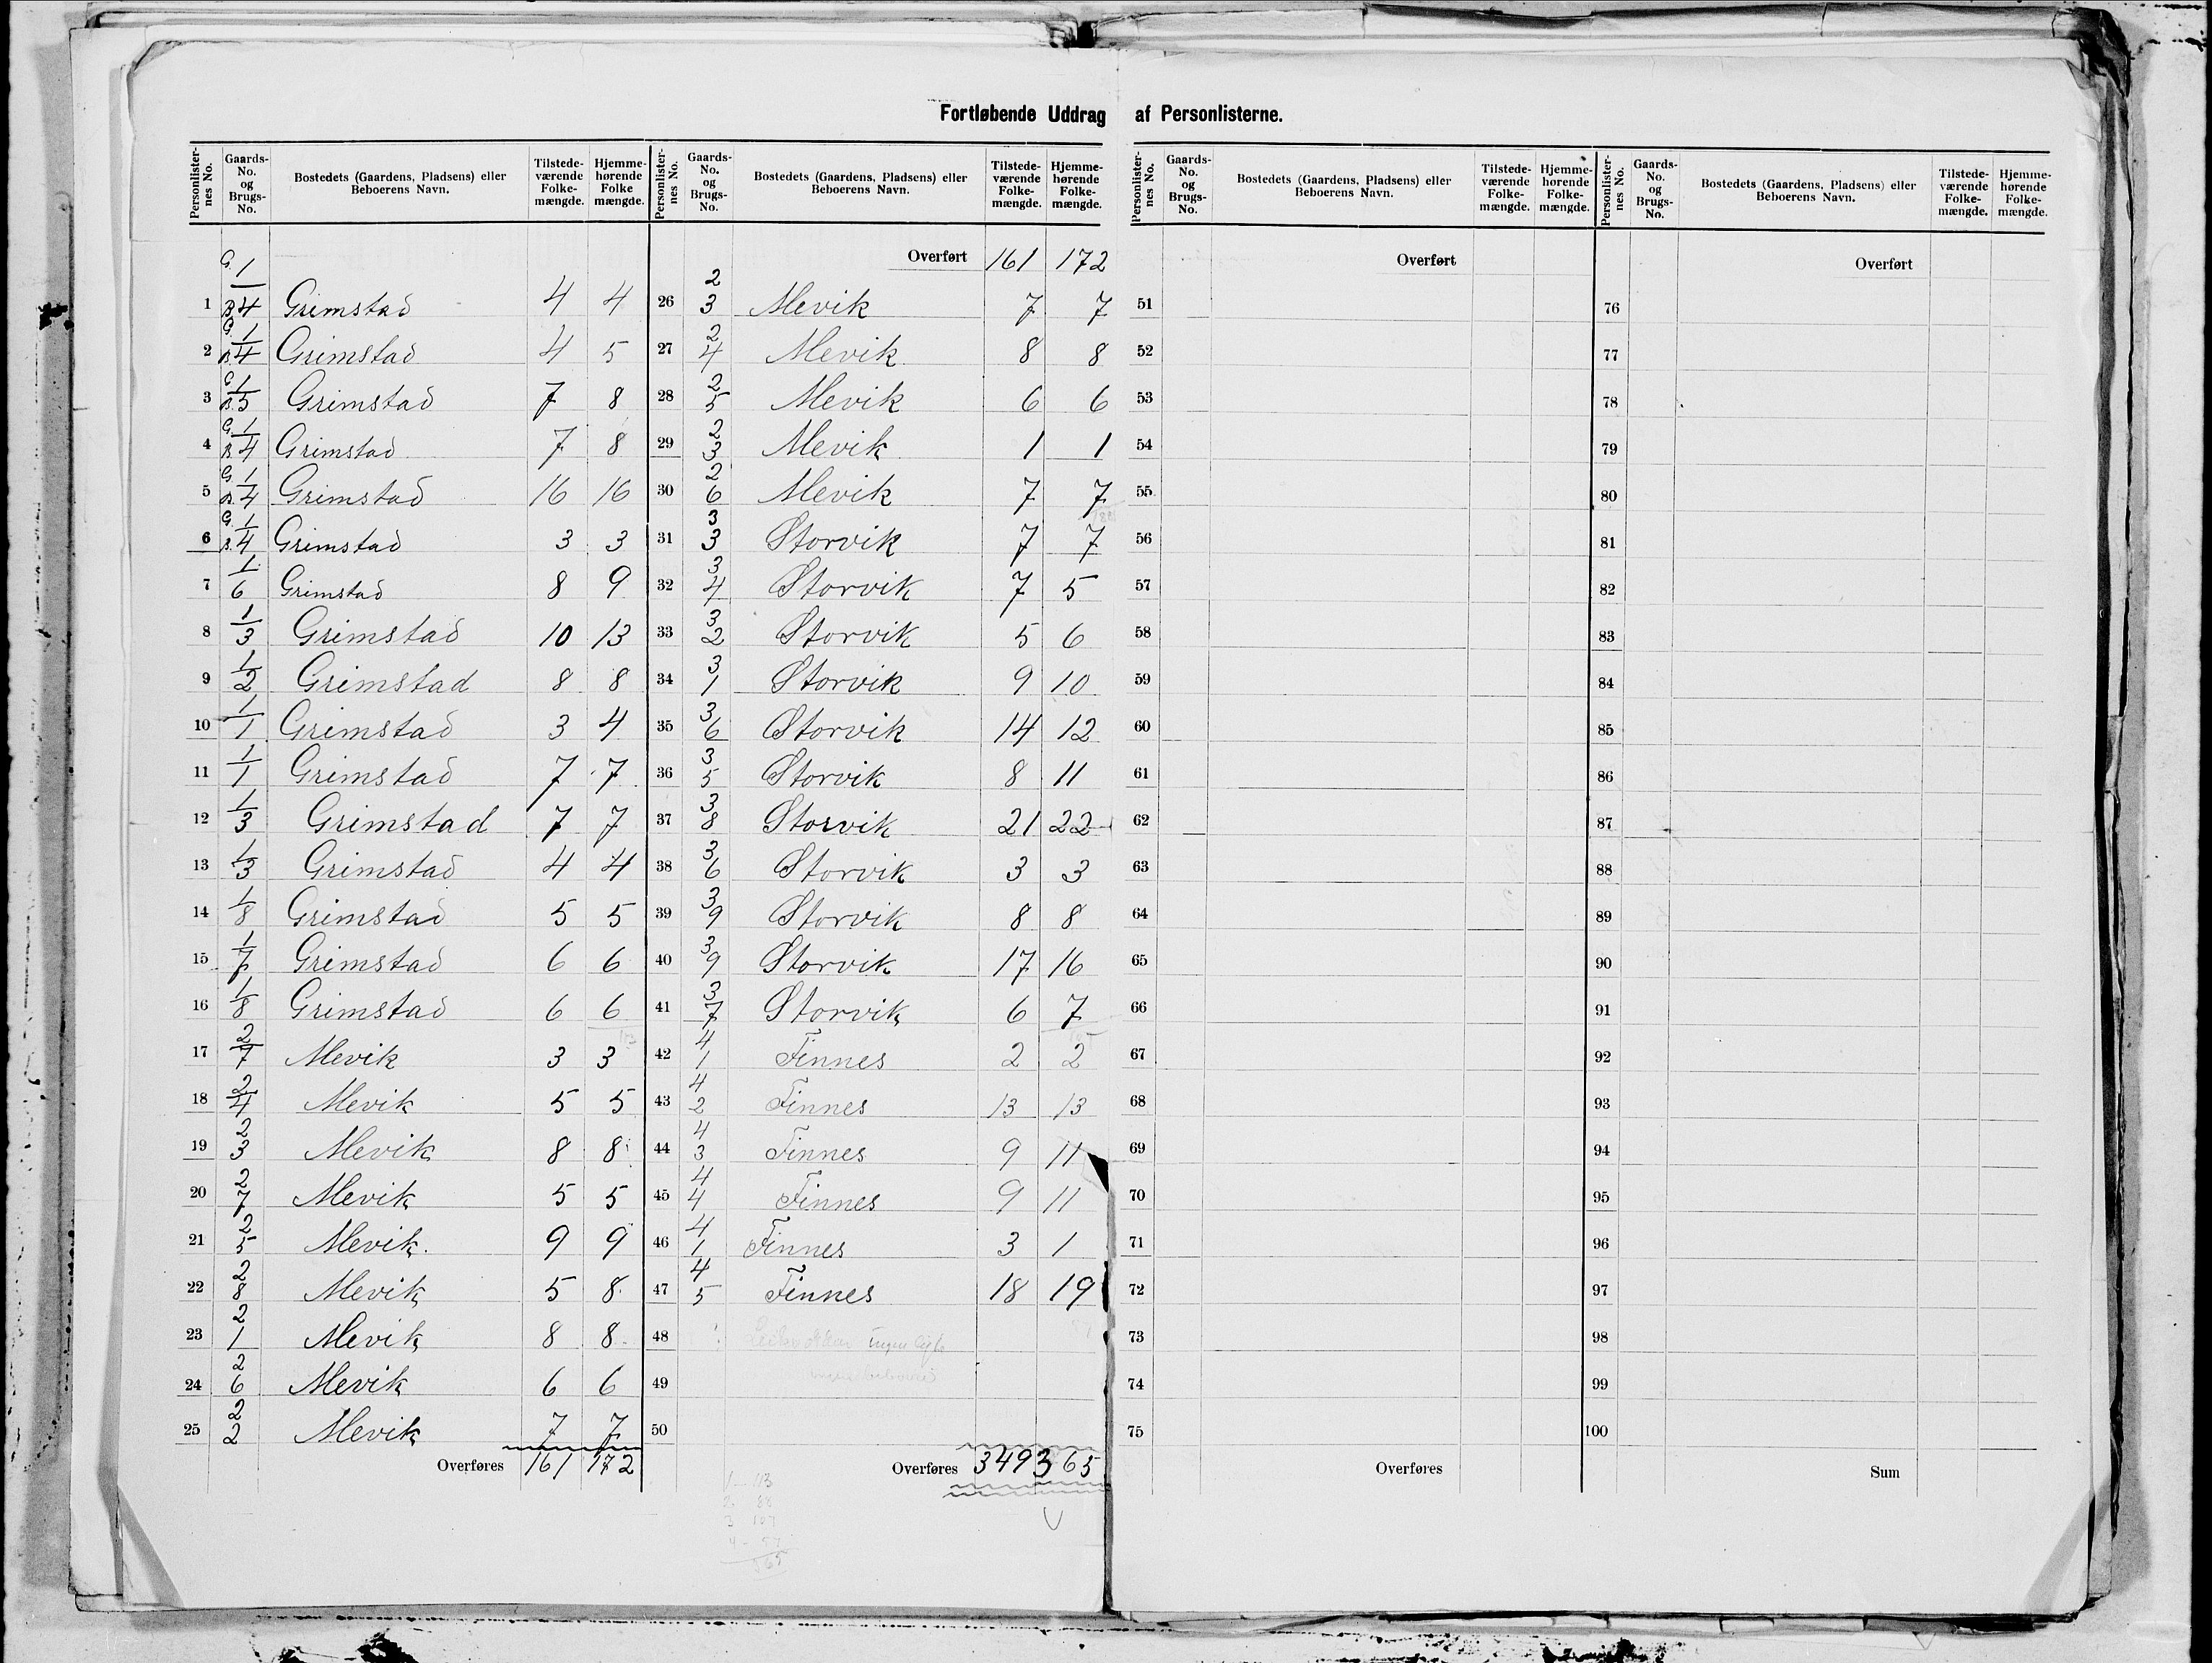 Fortløbende Uddrag af Personlisterne.
Personlisternes No. Gaards-No. og Brugs-No. Bostedets (Gaardens, Pladsens) eller Beboerens Navn. Tilstedeværende Folkemængde. Hjemmehørende Folkemængde.
1 G. 1 B. 4 Grimstad 4 4
2 G. 1 B. 4 Grimstad 4 5
3 G. 1 B. 5 Grimstad 7 8
4 G. 1 B. 4 Grimstad 7 8
5 G. 1 B. 4 Grimstad 16 16
6 G. 1 B. 4 Grimstad 3 3
7 1 6 Grimstad 8 9
8 1/3 Grimstad 10 13
9 1/2 Grimstad 8 8
10 1/1 Grimstad 3 4
11 1/1 Grimstad 7 7
12 1/3 Grimstad 7 7
13 1/3 Grimstad 4 4
14 1/8 Grimstad 5 5
15 1/7 Grimstad 6 6
16 1/8 Grimstad 6 6
17 2/7 Mevik 3 3
18 2/4 Mevik 5 5
19 2 3 Mevik 8 8
20 2 7 Mevik 5 5
21 2 5 Mevik. 9 9
22 2 8 Mevik 5 8
23 2 1 Mevik 8 8
24 2 6 Mevik 6 6
25 2 2 Mevik 7 7
Overføres 161 172
Personlisternes No. Gaards-No. og Brugs-No. Bostedets (Gaardens, Pladsens) eller Beboerens Navn. Tilstedeværende Folkemængde. Hjemmehørende Folkemængde.
Overført 161 172
26 2 3 Mevik 7 7
27 2 4 Mevik 8 8
28 2 5 Mevik 6 6
29 2 3 Mevik 1 1
30 2 6 Mevik 7 7
31 3 3 Storvik 7 7
32 3 4 Storvik 7 5
33 3 2 Storvik 5 6
34 3 1 Storvik 9 10
35 3 6 Storvik 14 12
36 3 5 Storvik 8 11
37 3 8 Storvik 21 22
38 3 6 Storvik 3 3
39 3 9 Storvik 8 8
40 3 9 Storvik 17 16
41 3 7 Storvik 6 7
42 4 1 Finnes 2 2
43 4 2 Finnes 13 13
44 4 3 Finnes 9 11
45 4 4 Finnes 9 11
46 4 1 Finnes 3 1
47 4 5 Finnes 18 19
48
49
50
Overføres 349 365
1 - 113
2 - 88
3 107
4 - 57
365
Personlisternes No. Gaards-No. og Brugs-No. Bostedets (Gaardens, Pladsens) eller Beboerens Navn. Tilstedeværende Folkemængde. Hjemmehørende Folkemængde.
Overført
51
52
53
54
55
56
57
58
59
60
61
62
63
64
65
66
67
68
69
70
71
72
73
74
75
Overføres
Personlisternes No. Gaards-No. og Brugs-No. Bostedets (Gaardens, Pladsens) eller Beboerens Navn. Tilstedeværende Folkemængde. Hjemmehørende Folkemængde.
Overført
76
77
78
79
80
81
82
83
84
85
86
87
88
89
90
91
92
93
94
95
96
97
98
99
100
Sum